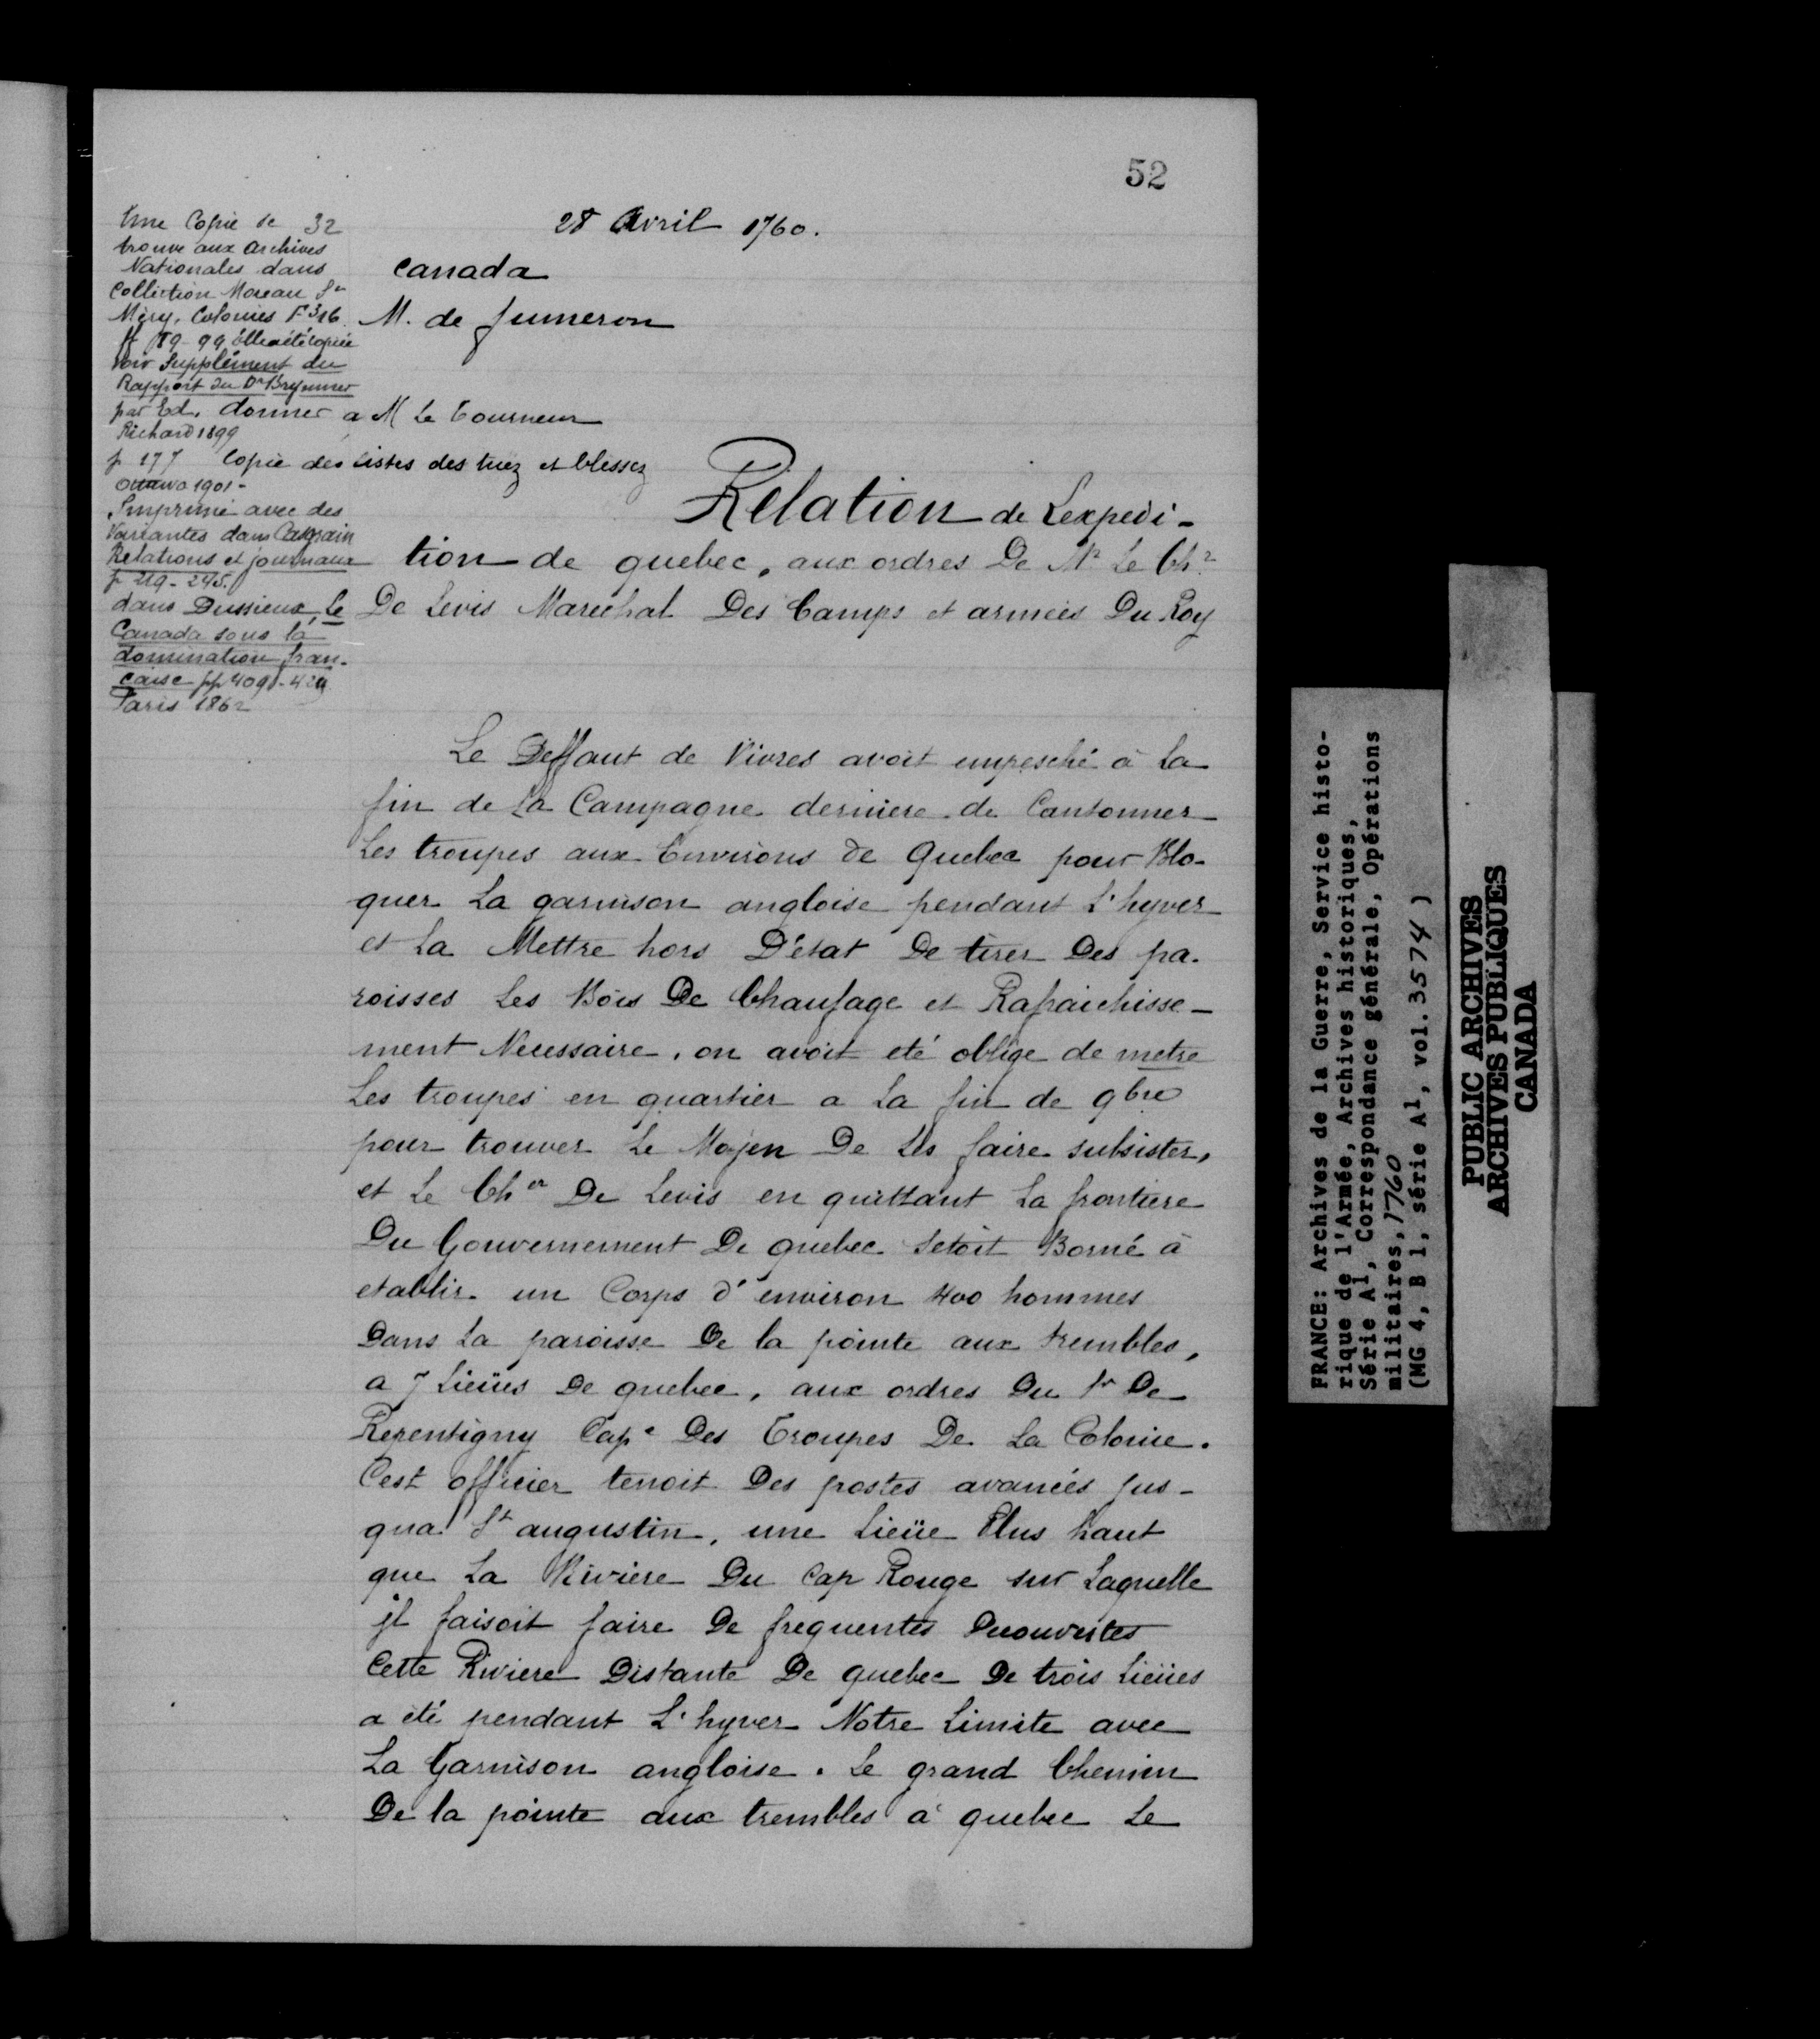 52
28 Avril 1760.
Canada
M. de Jumeron
donner a M Le Tourneur
Copie des Listes des tuez et blessez
Une Copie se 32
trouve aux Archives
Nationales dans
Collection Moreau St
Méry, Colonies F³ 16
ff 89-99 Elle a été copiée
Voir Supplément du
Rapport du Dr Brymner
par Ed.
Richard 1899
p 177
Ottawa 1901-
Imprimé avec des
Variantes dans Casgrain
Relations et journaux
p 219-245.
dans Dussieux, Le
Canada sous la
domination fran-
caise pp 409-429
Paris 1862
Relation de Lexpedi-
tion de quebec, aux ordres De Mr Le Chr
De Levis Marechal Des Camps et armées Du Roy
Le Deffaut de Vivres avoit empesché à La
fin de La Campagne derniere de Cantonner
Les troupes aux Environs de Quebec pour Blo-
quer La garnison angloise pendant L'hyver
et La Mettre hors D'état De tirer Des pa-
roisses Les Bois De Chaufage et Rafraichisse-
ment Necessaire, on avoit eté oblige de metre
Les troupes en quartier a La fin de 9bre
pour trouver Le Moyen De Les faire subsister,
et Le Cher De Levis en quittant La frontiere
Du Gouvernement De quebec Setoit Borné à
etablir un Corps d'environ 400 hommes
Dans La paroisse De la pointe aux trembles,
a 7 Lieües De quebec, aux ordres Du Sr De
Repentigny Cape Des Troupes De La Colonie.
Cest officier tenoit Des postes avancés jus-
qua St augustin, une Lieüe Plus haut
que La Riviere Du Cap Rouge sur Laquelle
jl faisoit faire De frequentes Decouvertes
Cette Riviere Distante De quebec De trois Lieües
a été pendant L'hyver Notre Limite avec
La Garnison angloise. Le grand Chemin
De la pointe aux trembles à quebec Le
FRANCE: Archives de la Guerre, Service histo-
rique de l'Armée, Archives historiques,
Série A1, Correspondance générale, Opérations
militaires, 1760
(MG 4, B 1, série A1, vol. 3574)
PUBLIC ARCHIVES
ARCHIVES PUBLIQUES
CANADA